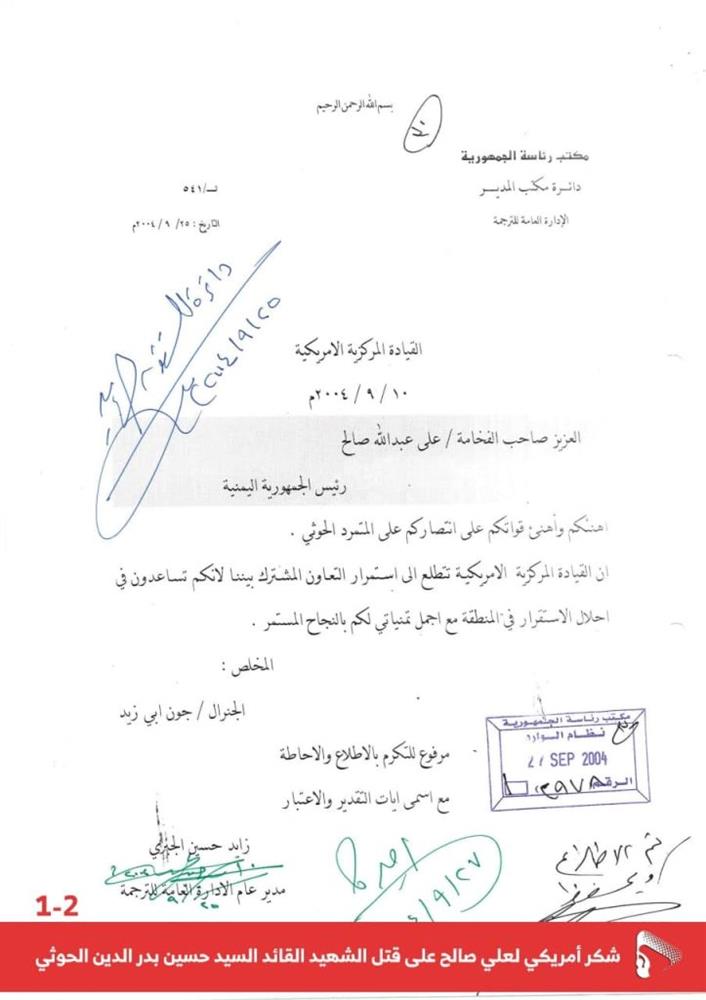 بسم الله الرحمن الرحيم
مكتب رئاسة الجمهورية
دائرة مكتب المديـــر
الإدارة العامة للترجمة
تـــ/٥٤١
التاريخ : ٢٥/ ٩ / ٢٠٠٤م
٢٠٠٤/٩/٢٥
القيادة المركزية الامريكية
١٠ / ٩ / ٢٠٠٤م
العزيز صاحب الفخامة / على عبدالله صالح
رئيس الجمهورية اليمنية
اهنئكم وأهنئ قواتكم على انتصاركم على المتمرد الحوثي .
ان القيادة المركزية الامريكية تتطلع الى استمرار التعاون المشترك بيننا لانكم تساعدون في
احلال الاستقرار في المنطقة مع اجمل تمنياتي لكم بالنجاح المستمر .
المخلص :
الجنرال / جون ابي زيد
مكتب رئاسة الجمهورية
نظام الوارد
27 SEP 2004
الرقم
مرفوع للتكرم بالاطلاع والاحاطة
مع اسمى ايات التقدير والاعتبار
زايد حسين الجبري
مدير عام الادارة العامة للترجمة
تم الاطلاع
ويحفظ
1-2
شكر أمريكي لعلي صالح على قتل الشهيد القائد السيد حسين بدر الدين الحوثي